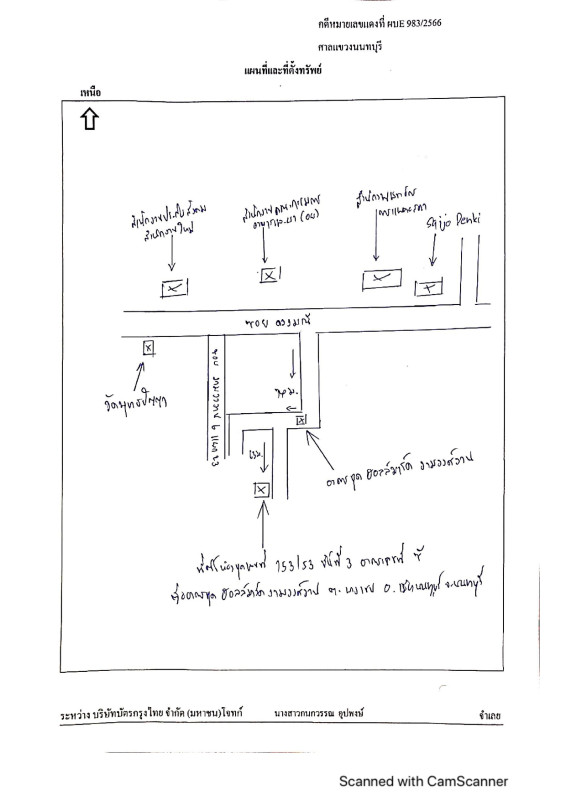 คดีหมายเลขแดงที่ ผบE 983/2566
ศาลแขวงนนทบุรี
แผนที่และที่ตั้งทรัพย์
เหนือ
สำนักงานประกันสังคม
สำนักงานใหญ่
สำนักงานคณะกรรมการ
อาหารและยา (อย)
Saijo Denki
ซอย
วัดพุทธปัญญา
อาคารชุด ฮอลล์มาร์ค งามวงศ์วาน
ที่ตั้งห้องชุดเลขที่ 153/53 ชั้นที่ 3 อาคารเลขที่
ชื่ออาคารชุด ฮอลล์มาร์ค งามวงศ์วาน ต. บางเขน อ. เมืองนนทบุรี จ.นนทบุรี
ระหว่าง บริษัทบัตรกรุงไทย จำกัด (มหาชน)โจทก์ นางสาวกนกวรรณ อุปพงษ์ จำเลย
Scanned with CamScanner